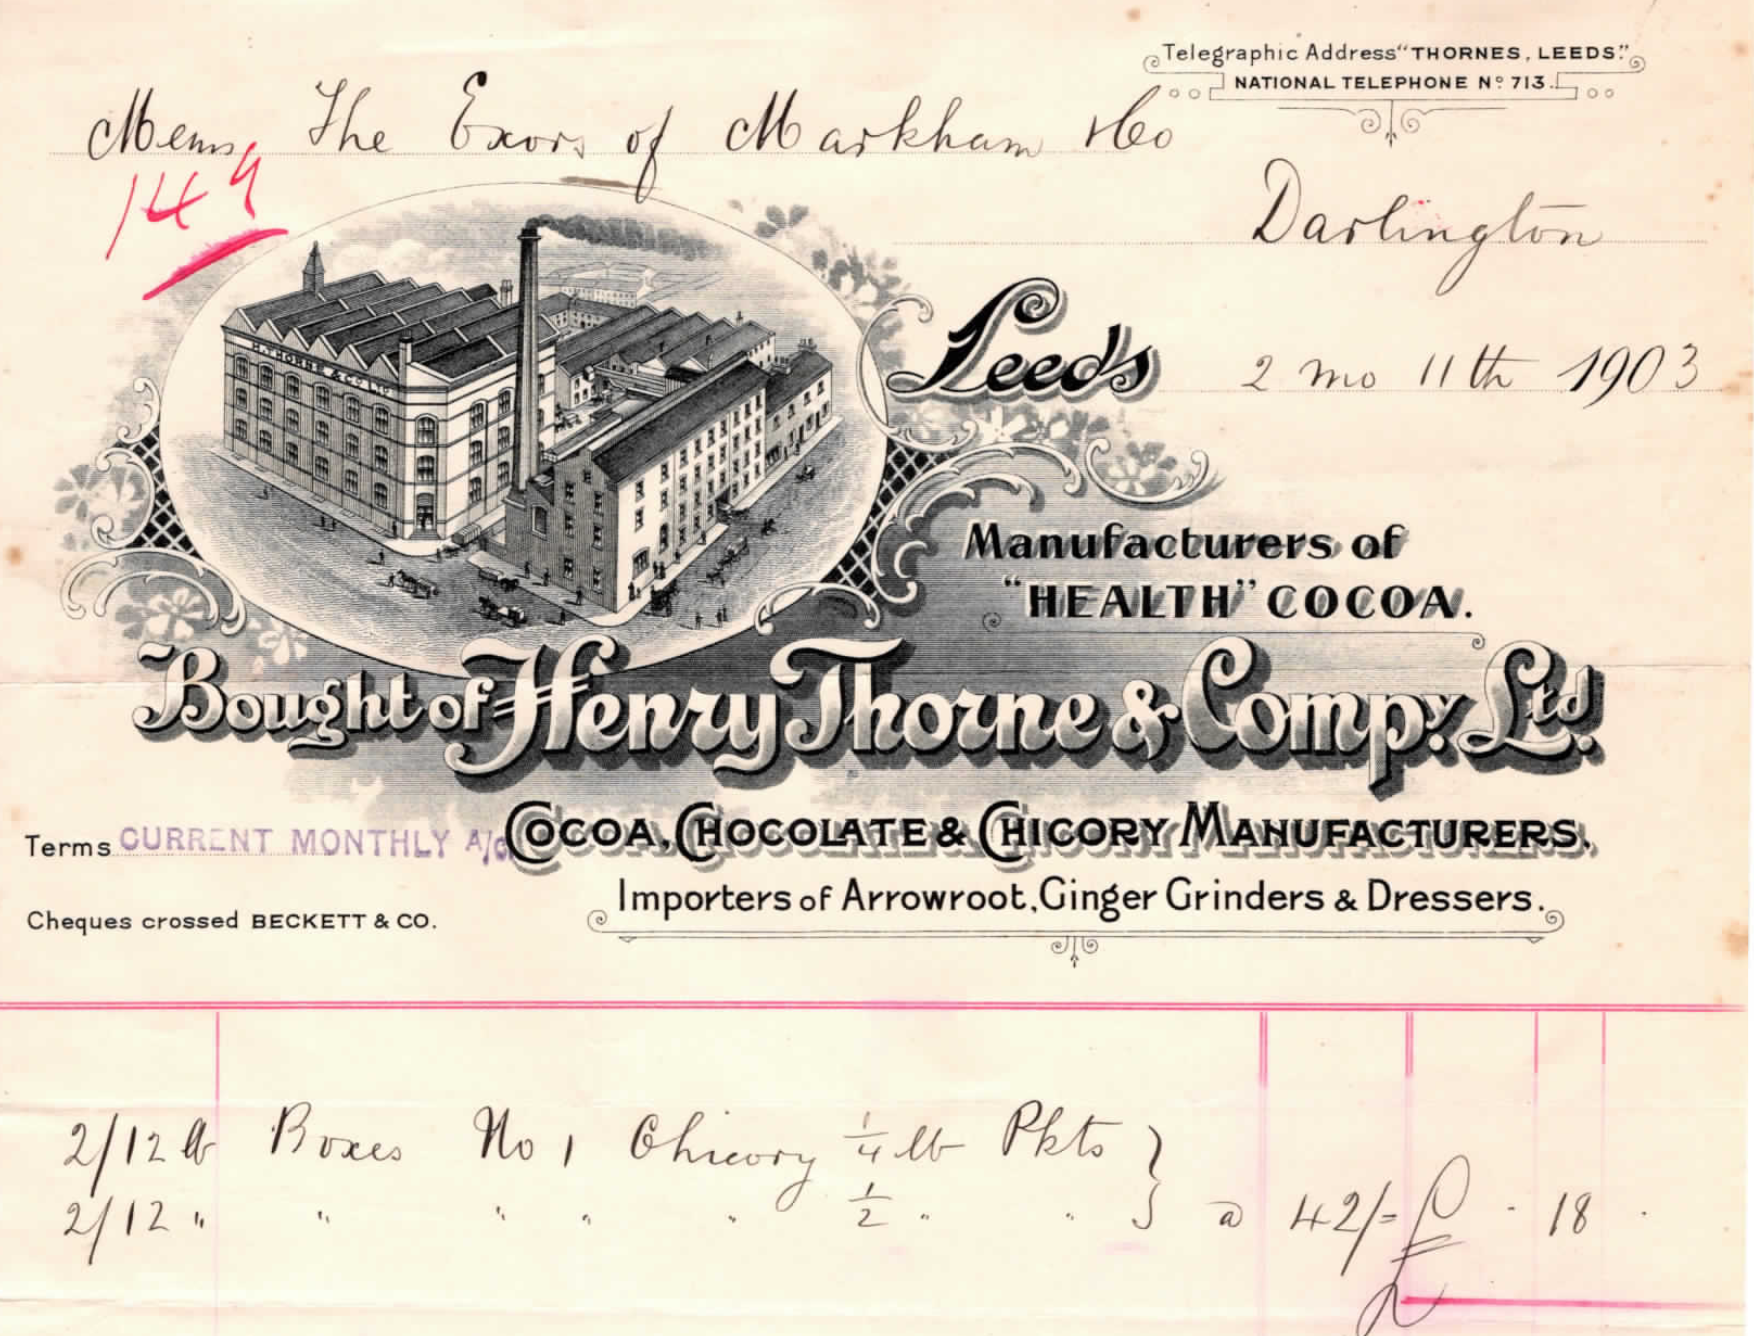 Telegraphic Address "THORNES, LEEDS."
NATIONAL TELEPHONE Nº 713.
Messrs The Exors of Markham & Co
149
Darlington
H. THORNE & CO LTD
Leeds 2 mo 11th 1903
Manufacturers of
"HEALTH" COCOA.
Bought of Henry Thorne & Compy. Ltd.
COCOA, CHOCOLATE & CHICORY MANUFACTURERS.
Terms CURRENT MONTHLY A/C
Importers of Arrowroot, Ginger Grinders & Dressers.
Cheques crossed BECKETT & CO.
2/12 lb Boxes No 1 Chicory 1/4 lb Pkts }
2/12 " " " " " 1/2 " " } @ 42/= £ - 18 .
£